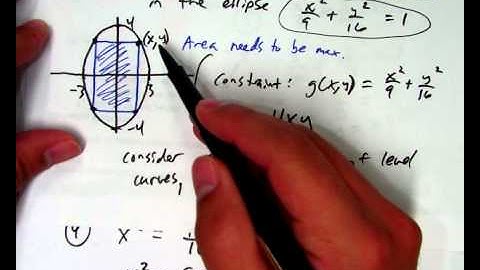 in the ellipse x²/9 + y²/16 = 1
4
(x,y)
Area needs to be max.
-3
3
-4
constraint: g(x,y) = x²/9 + y²/16
4xy
consider
of level
curves,
(4)
x =